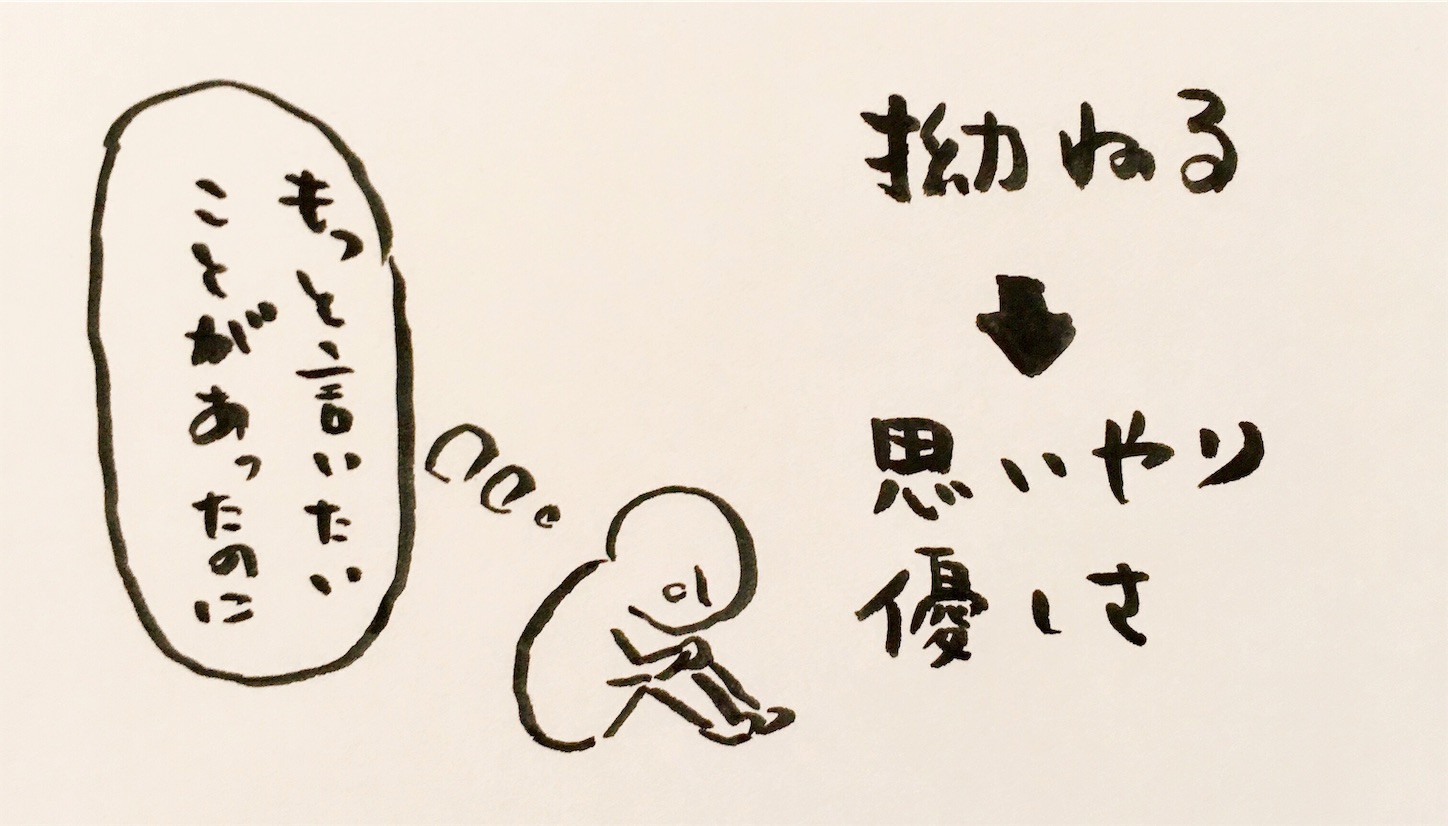 拗ねる
思いやり
優しさ
もっと言いたい
ことがあったのに